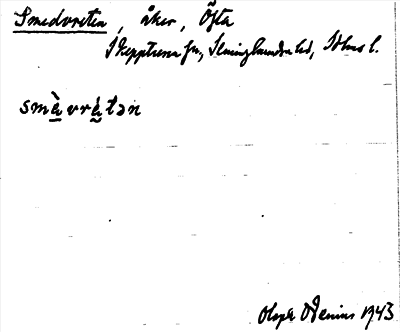 Smedvreten, åker, Öfta
Skepptuna sn, Seminghundra hd, Sthms l.
smè̱vré̱tən
Olof Odenius 1943